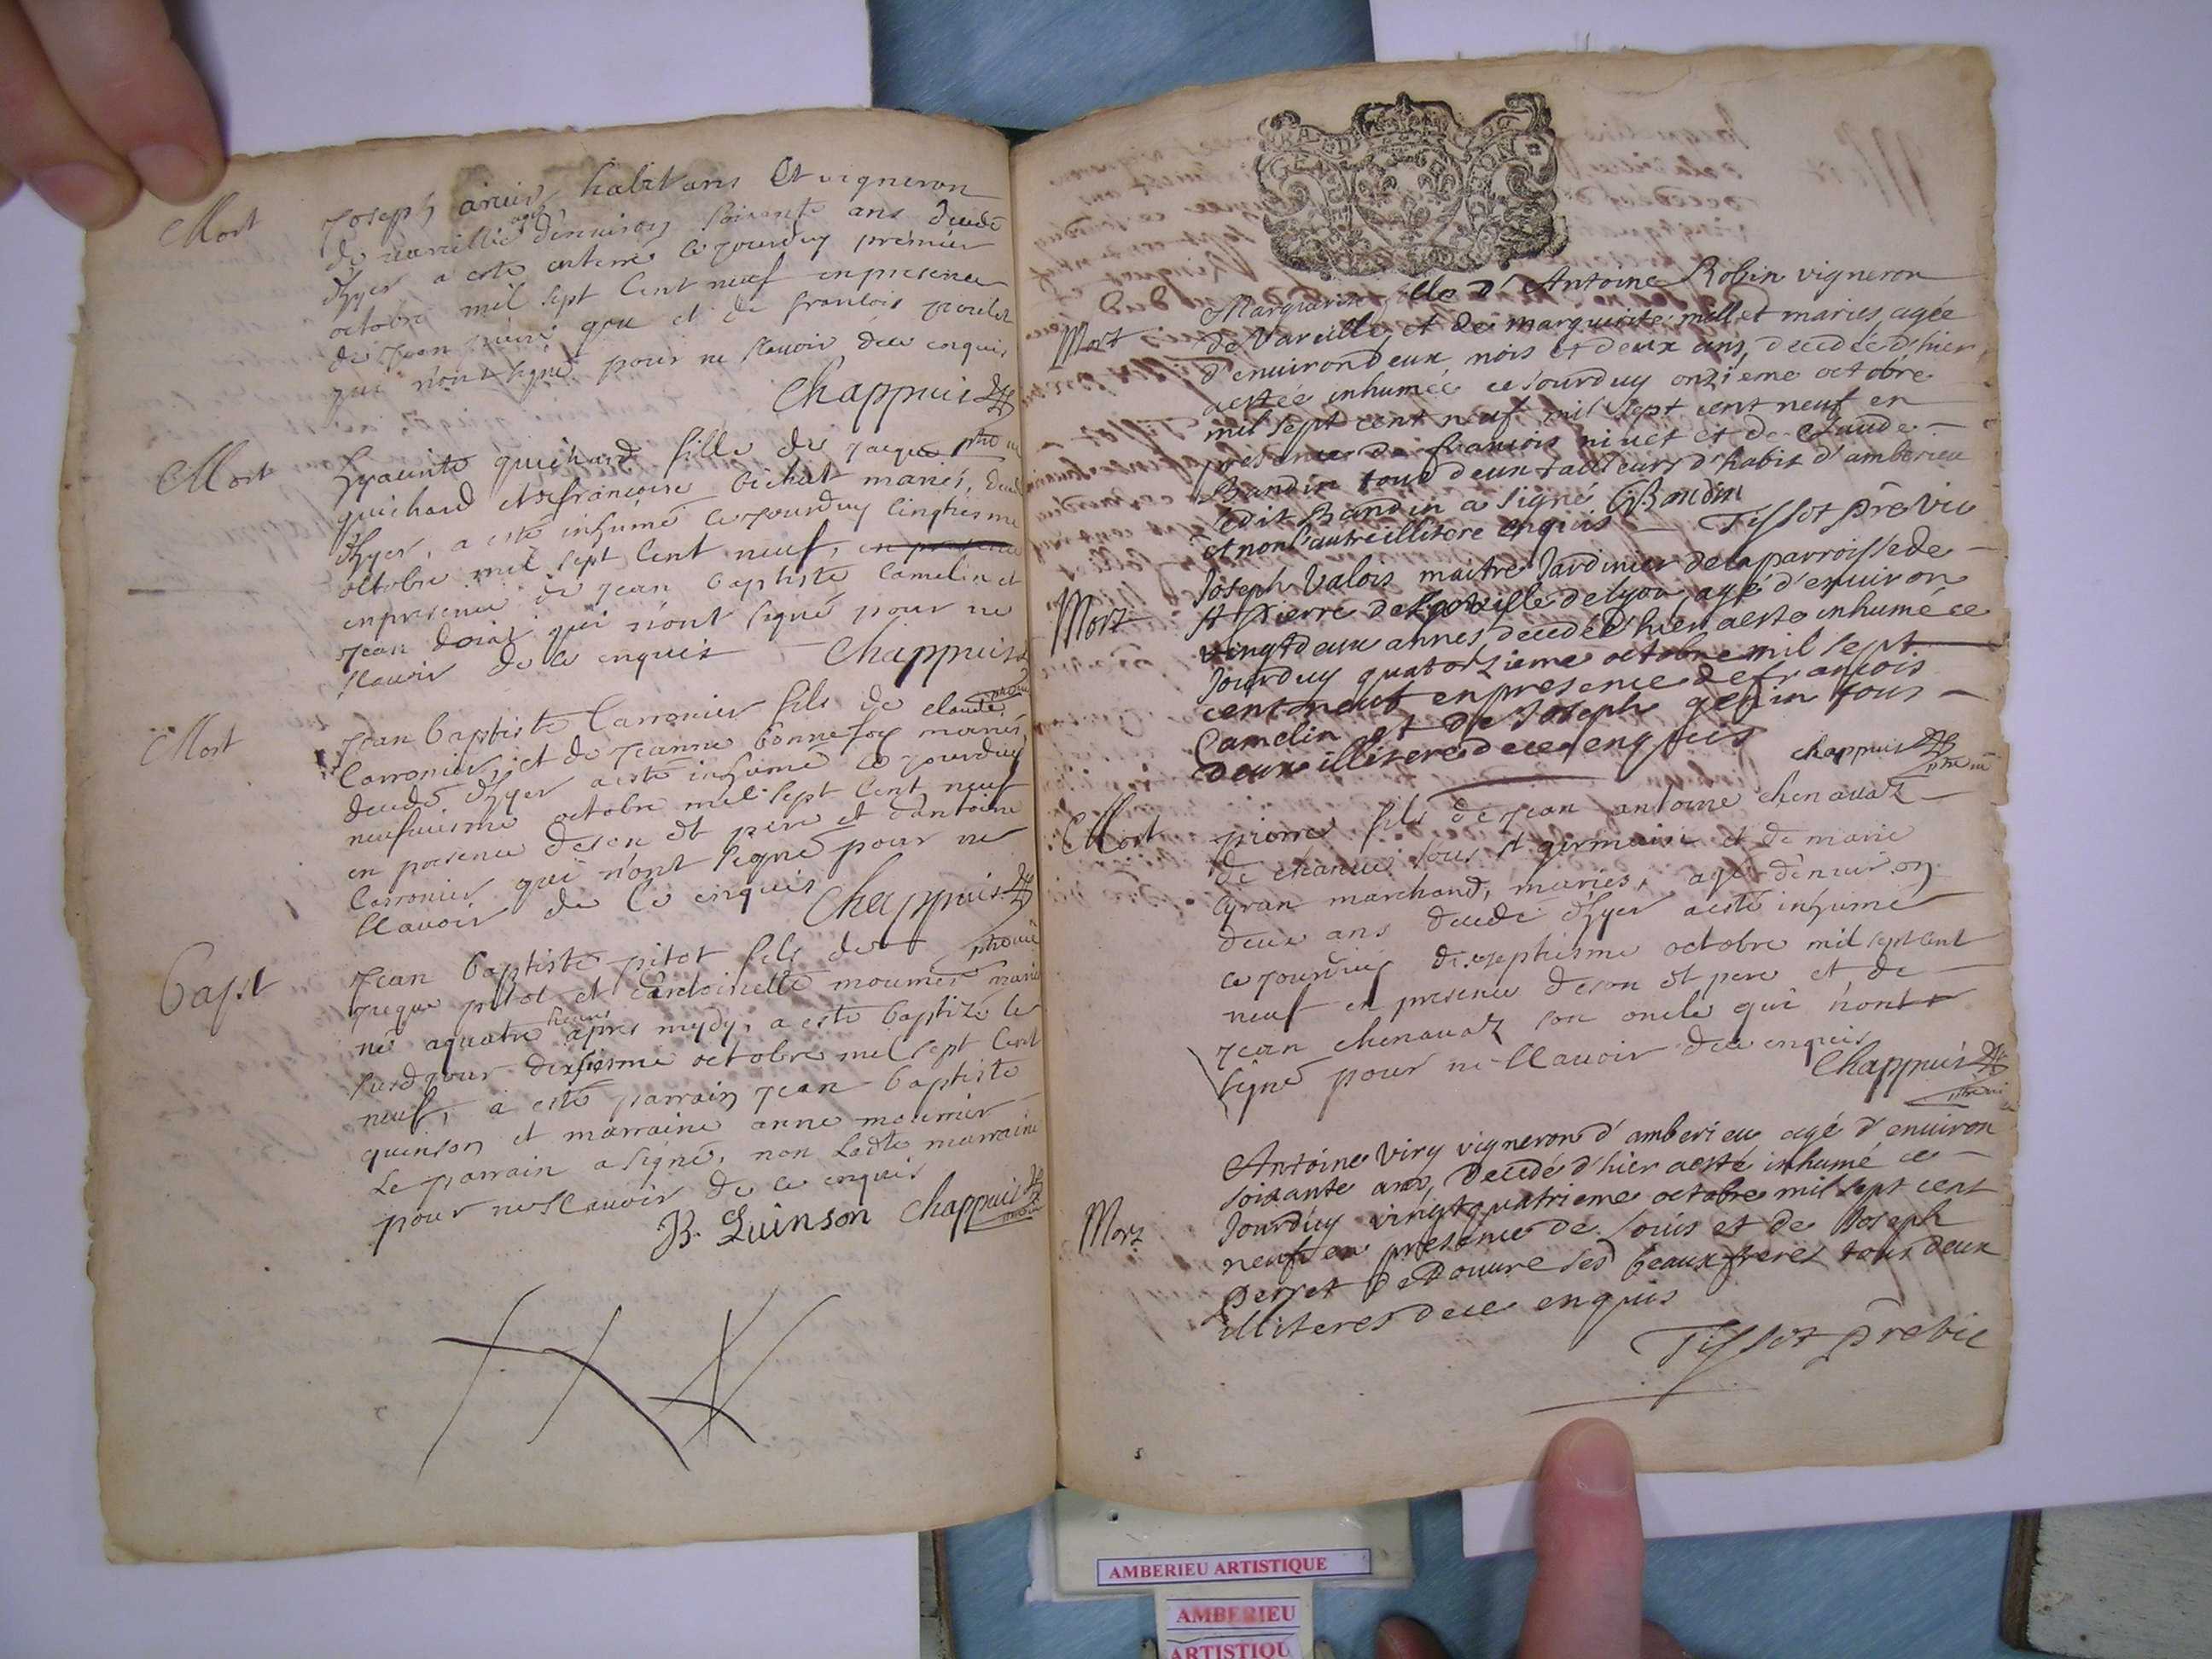 Mort
Joseph habitans et vigneron
de vareille agé d'environ soixante ans decedé
d'hyer a esté enterré ce jourduy premier
octobre mil sept cent neuf en presence
de Jean et de francois
qui n'ont signé pour ne scavoir de ce enquis
Chappuis
Mort
hyacinte guichard fille de jaque
guichard et de francoise bichat mariés, decedé
d'hyer, a esté inhumé ce jourduy cinquiesme
octobre mil sept cent neuf, en presence
en presence de jean baptiste Camelin et
jean qui n'ont signé pour ne
scavoir de ce enquis Chappuis
Mort
Jean baptiste Carronier fils de claude
Carronier, et de jeanne bonnefoy mariés,
decedé d'hyer a esté inhumé ce jourduy
neufviesme octobre mil sept cent neuf
en presence de son dt pere et d'antoine
Carronier qui n'ont signé pour ne
scavoir de ce enquis Chappuis
ptre vic
Bapt
Jean baptiste pitot fils de
jaque pitot et d'antoinette mariés
né a quatre heures apres midy, a esté baptizé le
susd jour dixiesme octobre mil sept cent
neuf, a esté parrain jean baptiste
quinson et marraine anne
le parrain a signé, non ladte marraine
pour ne scavoir de ce enquis
B. Quinson Chappuis
Mort
Marguerite fille d'Antoine Robin vigneron
de Vareille, et de marguerite millet mariés, agée
d'environ deux mois et deux ans, decedée d'hier,
a estée inhumée ce jourduy onzieme octobre
mil sept cent neuf mil sept cent neuf en
presence de francois nivet et de Claude
Bandin tous deux tailleurs d'habit d'amberieu
ledit Bandin a signé CBandin
et non l'autre illitere enquis Tissot prê vic
Mort
Joseph Valois maitre Jardinier de la parroisse de
St Pierre de la ville de lyon, agé d'environ
vingt deux annés decedé d'hier a esté inhumé ce
jourduy quatorzieme octobre mil sept
cent neuf en presence de francois
Camelin et de Joseph genin tous
deux illitere de ce enquis
chappuis
ptre vic
Mort
pierre fils de jean antoine chenavaz
de sous st germain et de marie
gran marchand, mariés, agé d'environ
deux ans decedé d'hyer a esté inhumé
ce jourduy dixseptiesme octobre mil sept cent
neuf en presence de son dt pere et de
jean chenavaz son oncle qui n'ont
signé pour ne scavoir de ce enquis
Chappuis
ptre vic
Mort
Antoine Viry vigneron d'amberieu agé d'environ
soixante ans, decedé d'hier a esté inhumé ce
Jourduy vingtquatrieme octobre mil sept cent
neuf en presence de Louis et de Joseph
Perret de Douvre ses beaux freres tous deux
illiteres de ce enquis
Tissot prê vic
AMBERIEU ARTISTIQUE
AMBERIEU
ARTISTIQU